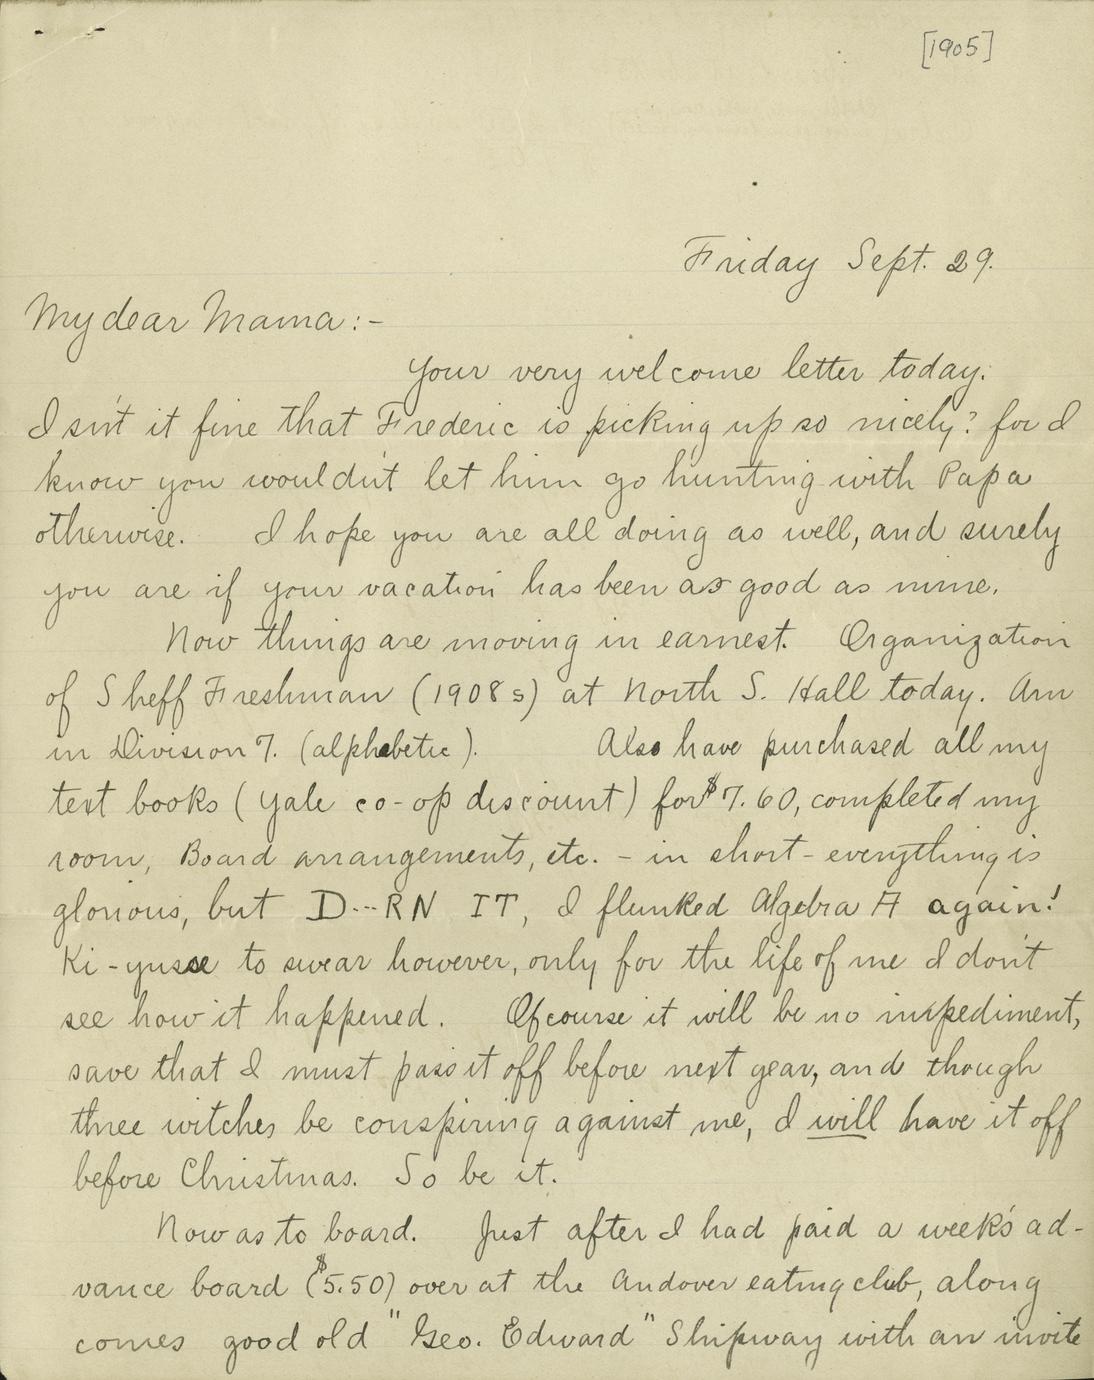 [1905]
Friday Sept. 29.
My dear Mama:-
Your very welcome letter today.
Isn't it fine that Frederic is picking up so nicely? for I
know you wouldn't let him go hunting with Papa
otherwise. I hope you are all doing as well, and surely
you are if your vacation has been as good as mine.
Now things are moving in earnest. Organization
of Sheff Freshman (1908s) at North S. Hall today. Am
in Division 7. (alphabetic). Also have purchased all my
text books (Yale co-op discount) for $7.60, completed my
room, Board arrangements, etc. - in short - everything is
glorious, but D---RN IT, I flunked Algebra A again!
Ki-yusse to swear however, only for the life of me I don't
see how it happened. Of course it will be no impediment,
save that I must pass it off before next year, and though
three witches be conspiring against me, I will have it off
before Christmas. So be it.
Now as to board. Just after I had paid a week's ad-
vance board ($5.50) over at the Andover eating club, along
comes good old "Geo. Edward" Shipway with an invite